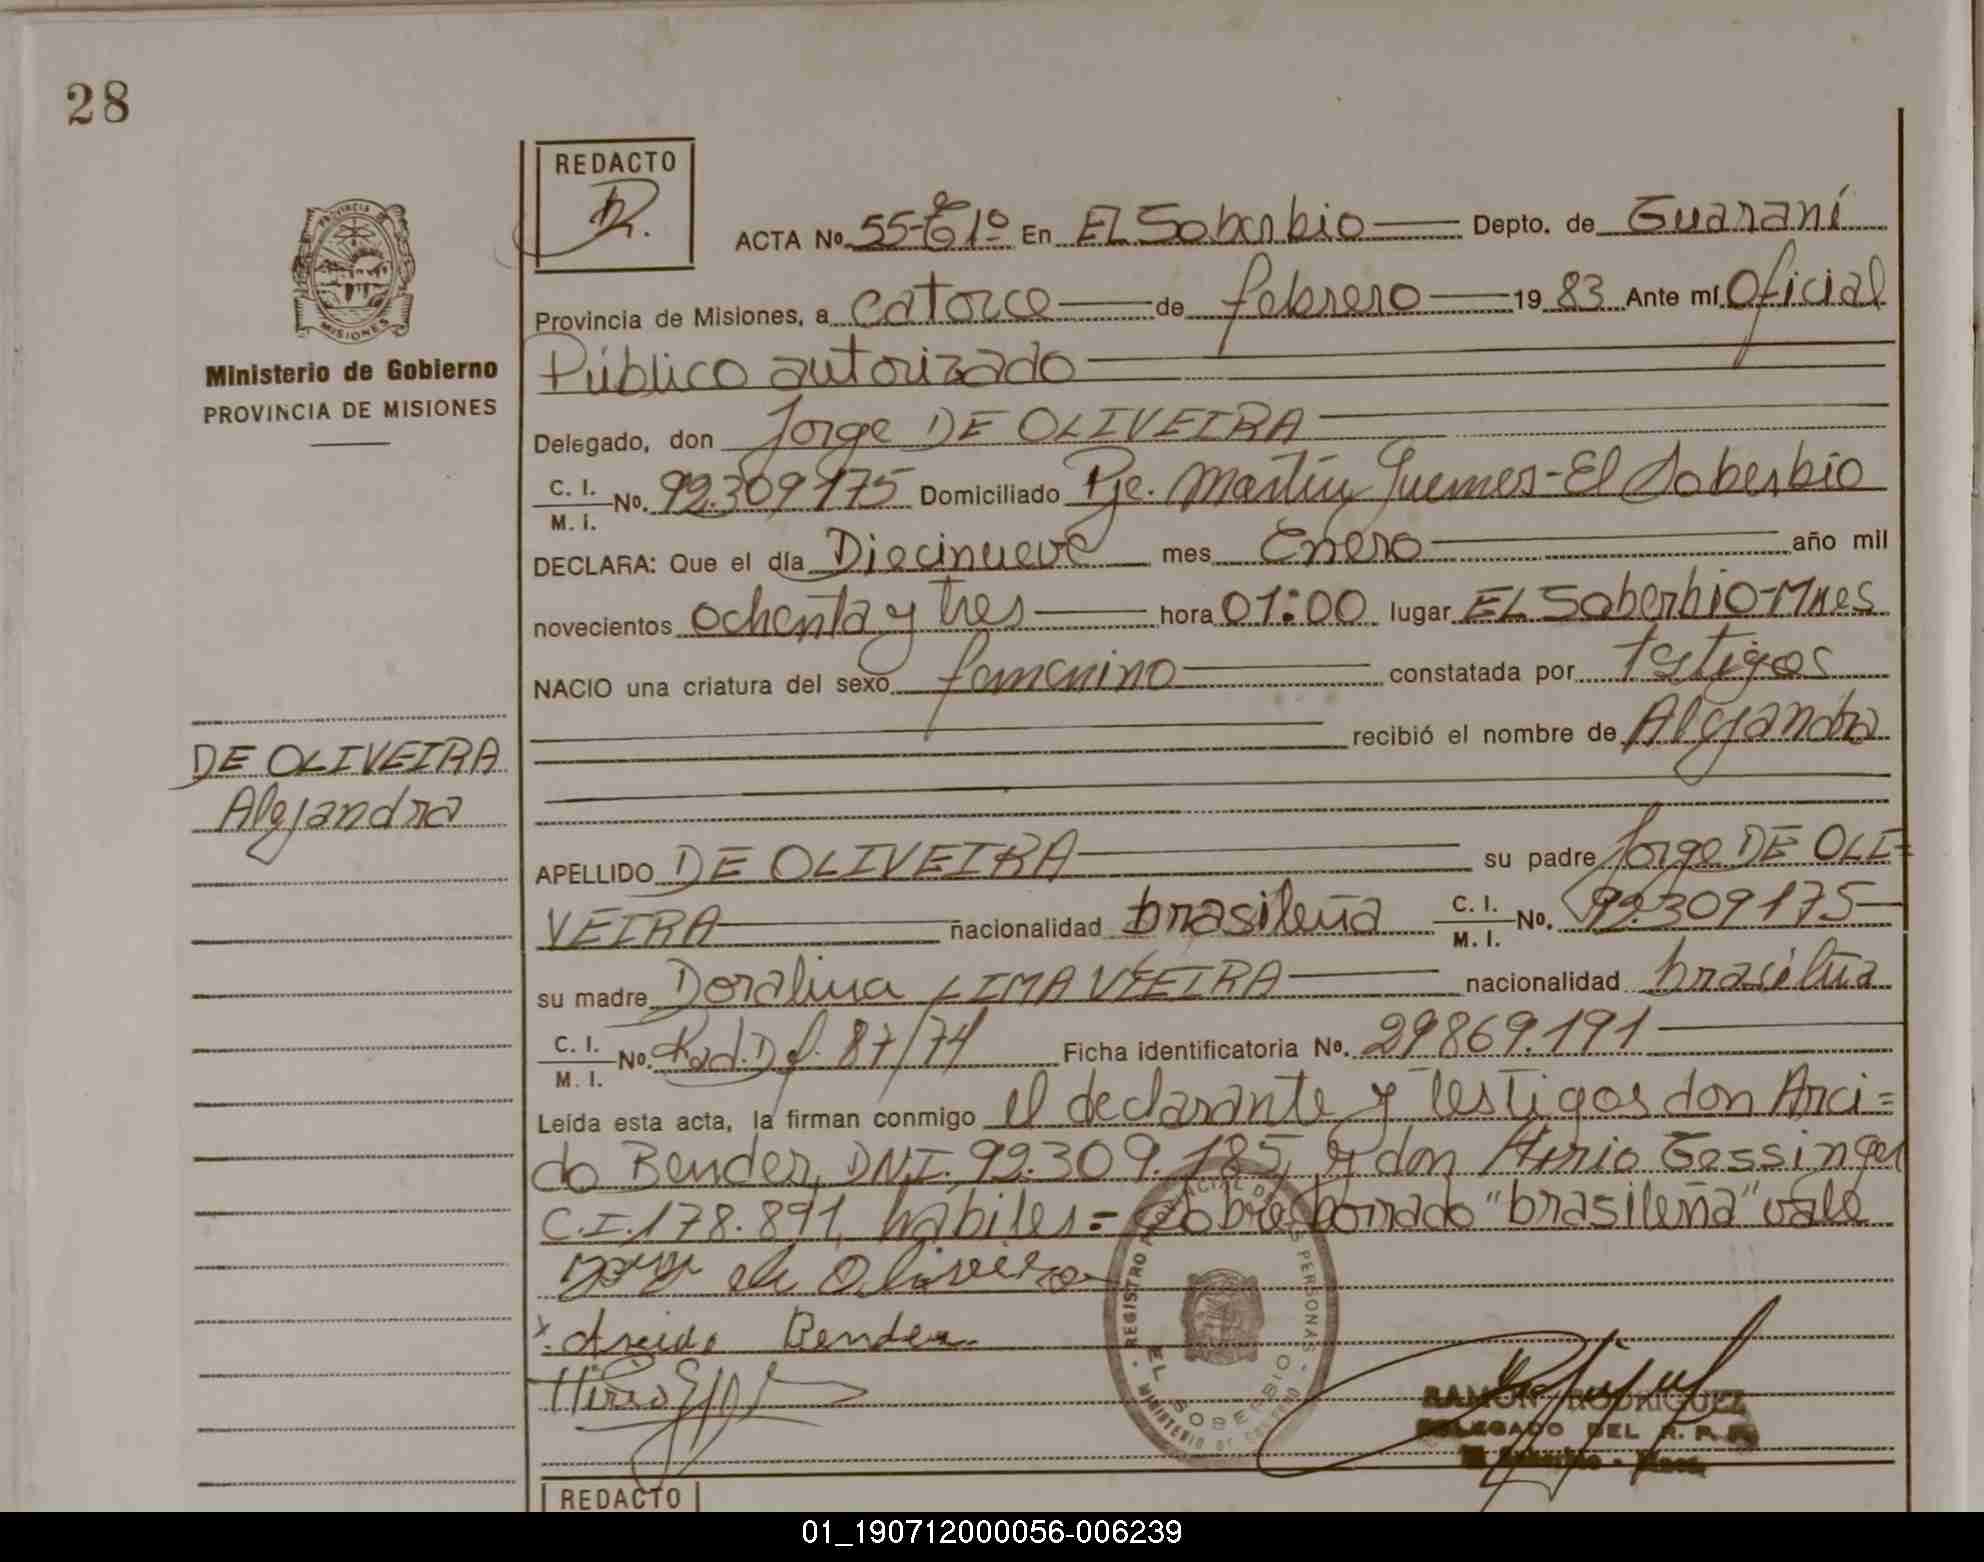 28
REDACTO
ACTA No. 55-Tº1º En EL Soberbio Depto. de Guaraní
PROVINCIA DE
MISIONES
Provincia de Misiones, a catorce de febrero 1983 Ante mí Oficial
Ministerio de Gobierno
PROVINCIA DE MISIONES
Público autorizado
Delegado, don Jorge DE OLIVEIRA
C. I. / M. I. No. 92.309175 Domiciliado Pje. Martín Guemes-El Soberbio
DECLARA: Que el día Diecinueve mes Enero año mil
novecientos ochenta y tres hora 01:00 lugar EL Soberbio-Mnes
NACIO una criatura del sexo femenino constatada por testigos
recibió el nombre de Alejandra
DE OLIVEIRA
Alejandra
APELLIDO DE OLIVEIRA su padre Jorge DE OLI=
VEIRA nacionalidad brasileña C. I. / M. I. No. 92.309175
su madre Doralina LIMA VIEIRA nacionalidad brasileña
C. I. / M. I. No. Rad. D f. 87/74 Ficha identificatoria No. 29869.191
Leída esta acta, la firman conmigo el declarante y Testigos don Arci=
do Bender, DNI. 92.309.185, y don Hirio Gessinger
C.I. 178.891, habiles=Sobre borrado "brasileña" vale
de Oliveira
x. Arcido Bender
Hirio
REGISTRO PROVINCIAL DE LAS PERSONAS
EL SOBERBIO
MINISTERIO DE GOBIERNO
RAMON RODRIGUEZ
DELEGADO DEL R. P. P.
El Soberbio - Mnes.
REDACTO
01_190712000056-006239